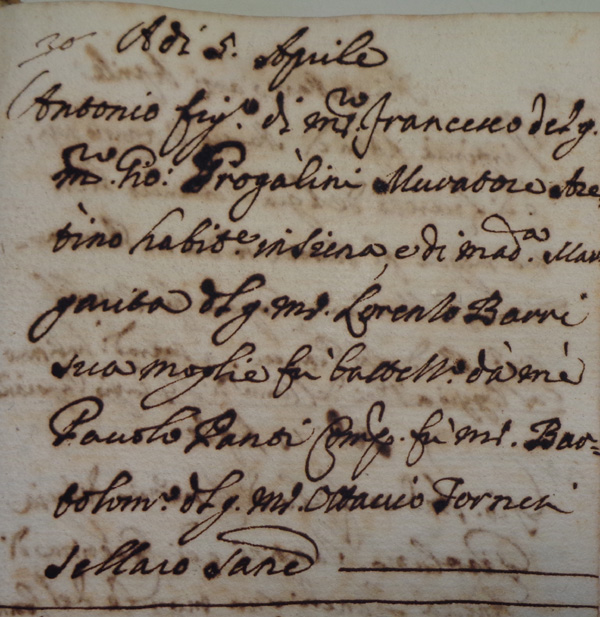 30 Adi 5. Aprile
Antonio fig.º di m.ro Francesco del q.
m.ro Gio: Frogàlini Muratore Are=
tino habit.e in Siena, e di mad.a Mar
garita del q. m.º Lorenzo Barri
sua moglie fù battezz.º dà mè
Pavolo Pansi Comp. fù m.º Bar=
tolom.º del q. m.º Ottavio Torneri
sellaro Sane